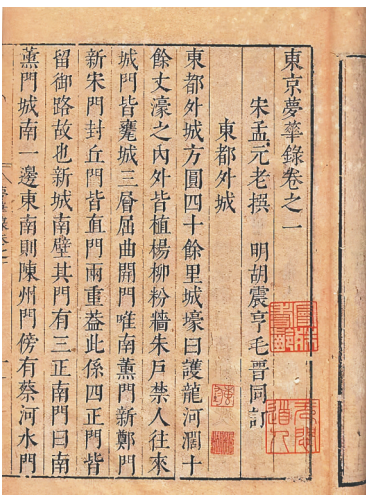 東京夢華錄卷之一
宋孟元老撰　明胡震亨毛晋同訂
東都外城
東都外城方圓四十餘里城壕曰護龍河濶十
餘丈濠之內外皆植楊柳粉牆朱戶禁人往來
城門皆甕城三層屈曲開門唯南薰門新鄭門
新宋門封丘門皆直門兩重葢此係四正門皆
留御路故也新城南壁其門有三正南門曰南
薰門城南一邊東南則陳州門傍有蔡河水門